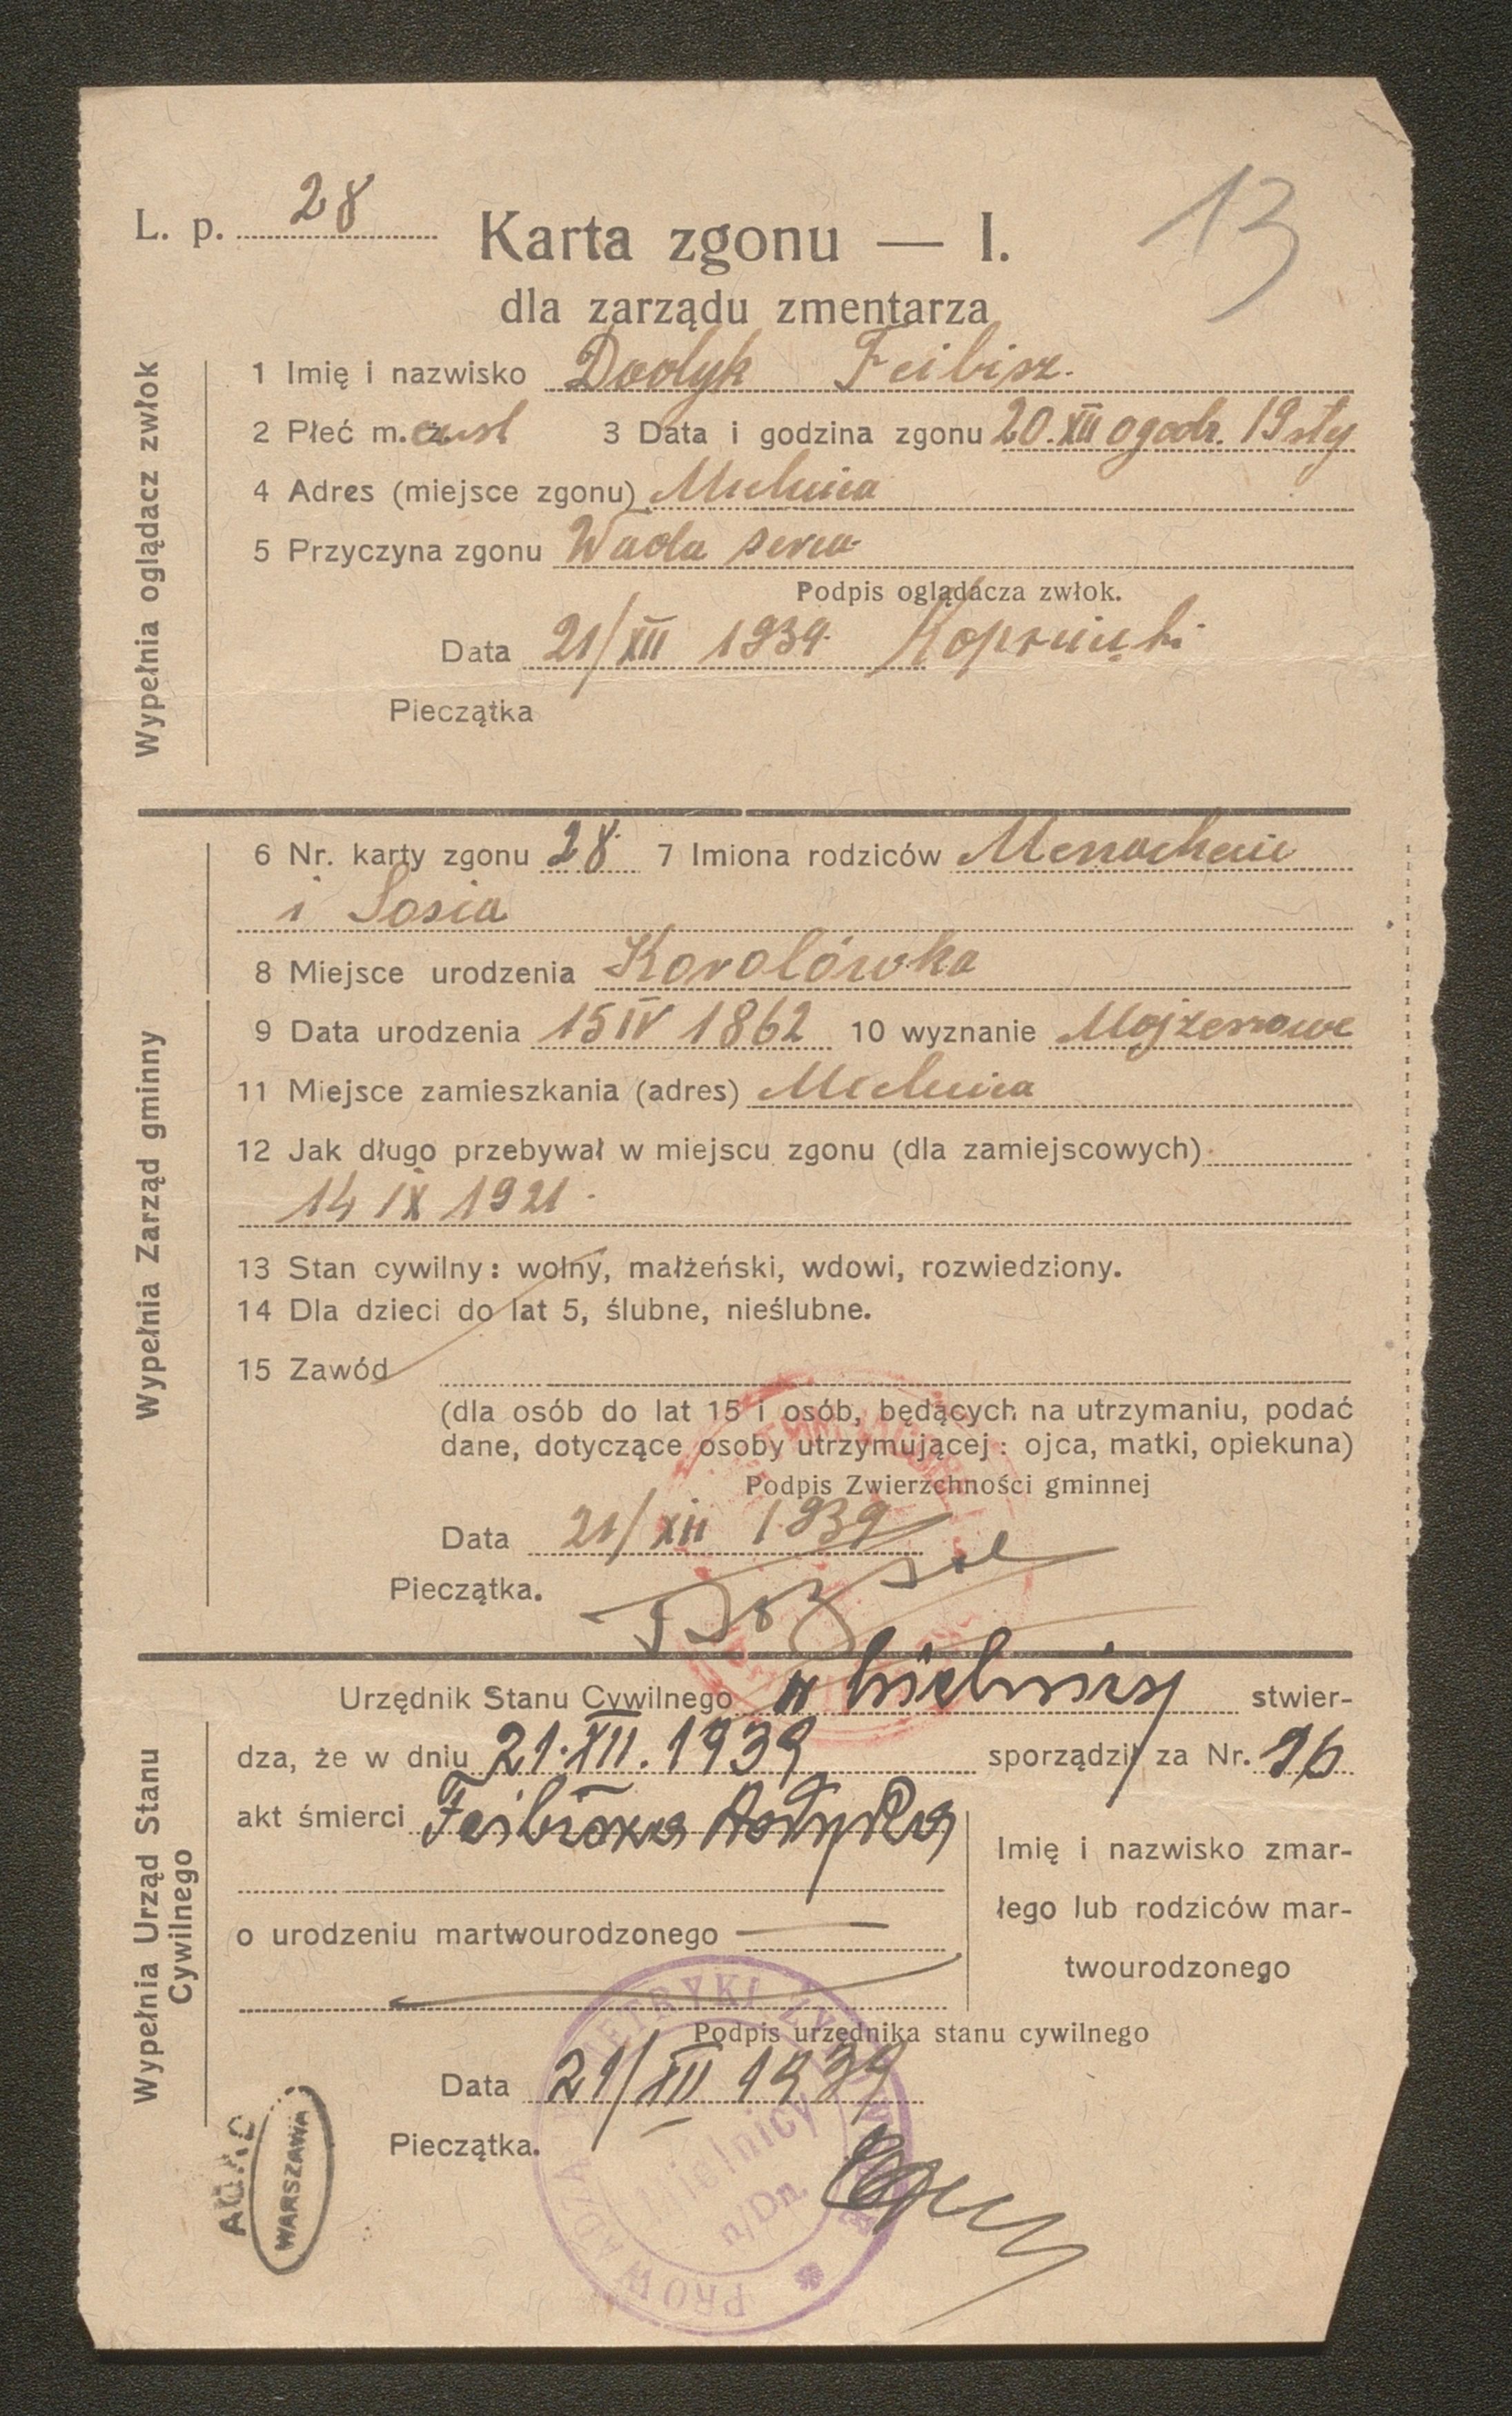 L. p. 28
13
Karta zgonu — I.
dla zarządu zmentarza
Wypełnia oglądacz zwłok
1 Imię i nazwisko Dodyk Feibisz.
2 Płeć m. 3 Data i godzina zgonu 20.XII o godz. 19 sty
4 Adres (miejsce zgonu) Mielnica
5 Przyczyna zgonu Wada serca
Podpis oglądacza zwłok.
Data 21/XII 1939
Pieczątka
Wypełnia Zarząd gminny
6 Nr. karty zgonu 28 7 Imiona rodziców
i Sosia
8 Miejsce urodzenia Korolówka
9 Data urodzenia 15 IV 1862 10 wyznanie Mojżeszowe
11 Miejsce zamieszkania (adres) Mielnica
12 Jak długo przebywał w miejscu zgonu (dla zamiejscowych)
14 IX 1921
13 Stan cywilny: wolny, małżeński, wdowi, rozwiedziony.
14 Dla dzieci do lat 5, ślubne, nieślubne.
15 Zawód
(dla osób do lat 15 i osób, będących na utrzymaniu, podać
dane, dotyczące osoby utrzymującej: ojca, matki, opiekuna)
Podpis Zwierzchności gminnej
Data 21/XII 1939
Pieczątka.
Wypełnia Urząd Stanu
Cywilnego
Urzędnik Stanu Cywilnego w Mielnicy stwier-
dza, że w dniu 21.XII.1939 sporządził za Nr. 16
akt śmierci Feibisza Dodyka
Imię i nazwisko zmar-
łego lub rodziców mar-
twourodzonego
o urodzeniu martwourodzonego
Podpis urzędnika stanu cywilnego
Data 21/XII 1939
Pieczątka.
PROWADZĄ METRYKI
Mielnicy
n/Dn.
AGAD
WARSZAWA